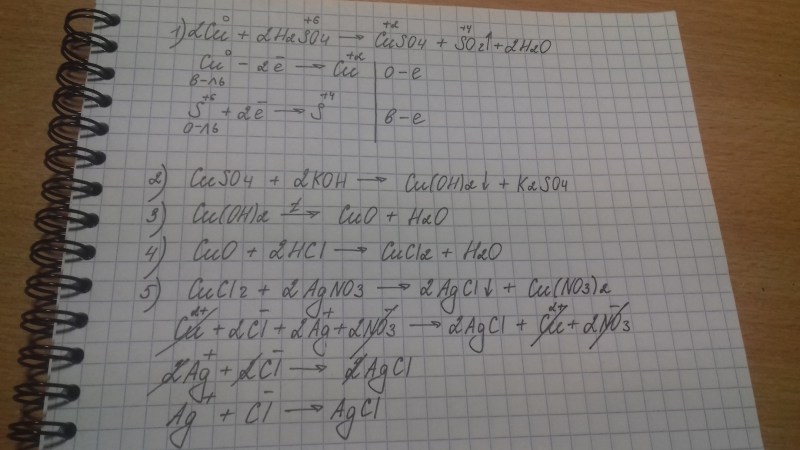 1) 2Cu⁰ + 2H2S⁺⁶O4 → Cu⁺²SO4 + S⁺⁴O2↑ + 2H2O
Cu⁰ - 2e̅ → Cu⁺² | о-е
в-ль
S⁺⁶ + 2e̅ → S⁺⁴ | в-е
о-ль
2) CuSO4 + 2KOH → Cu(OH)2↓ + K2SO4
3) Cu(OH)2 →ᵗ CuO + H2O
4) CuO + 2HCl → CuCl2 + H2O
5) CuCl2 + 2AgNO3 → 2AgCl↓ + Cu(NO3)2
Cu²⁺ + 2Cl⁻ + 2Ag⁺ + 2NO3⁻ → 2AgCl + Cu²⁺ + 2NO3⁻
2Ag⁺ + 2Cl⁻ → 2AgCl
Ag⁺ + Cl⁻ → AgCl